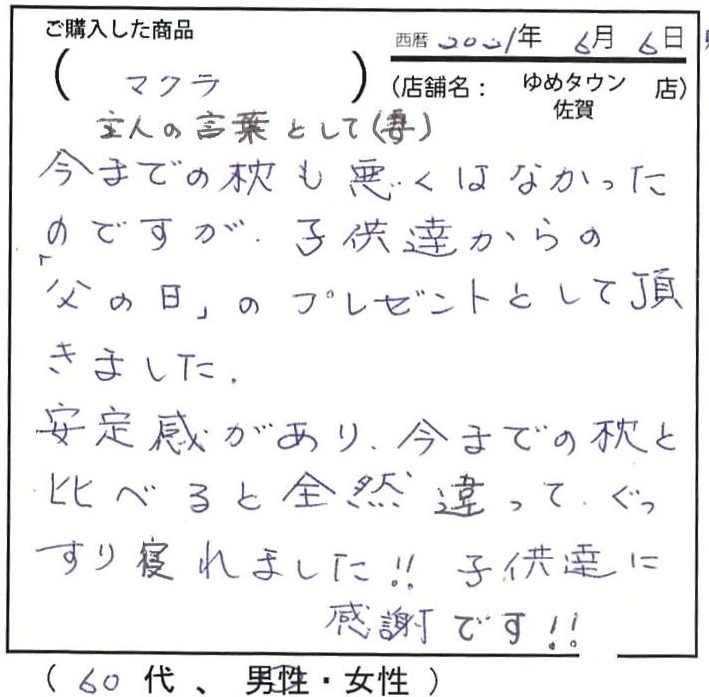 ご購入した商品
西暦 2021年 6月 6日
( マクラ )
(店舗名： ゆめタウン佐賀 店)
主人の言葉として(妻)
今までの枕も悪くはなかった
のですが、子供達からの
「父の日」のプレゼントとして頂
きました。
安定感があり、今までの枕と
比べると全然違って、ぐっ
すり寝れました!! 子供達に
感謝です!!
( 60 代 、 男性・女性 )